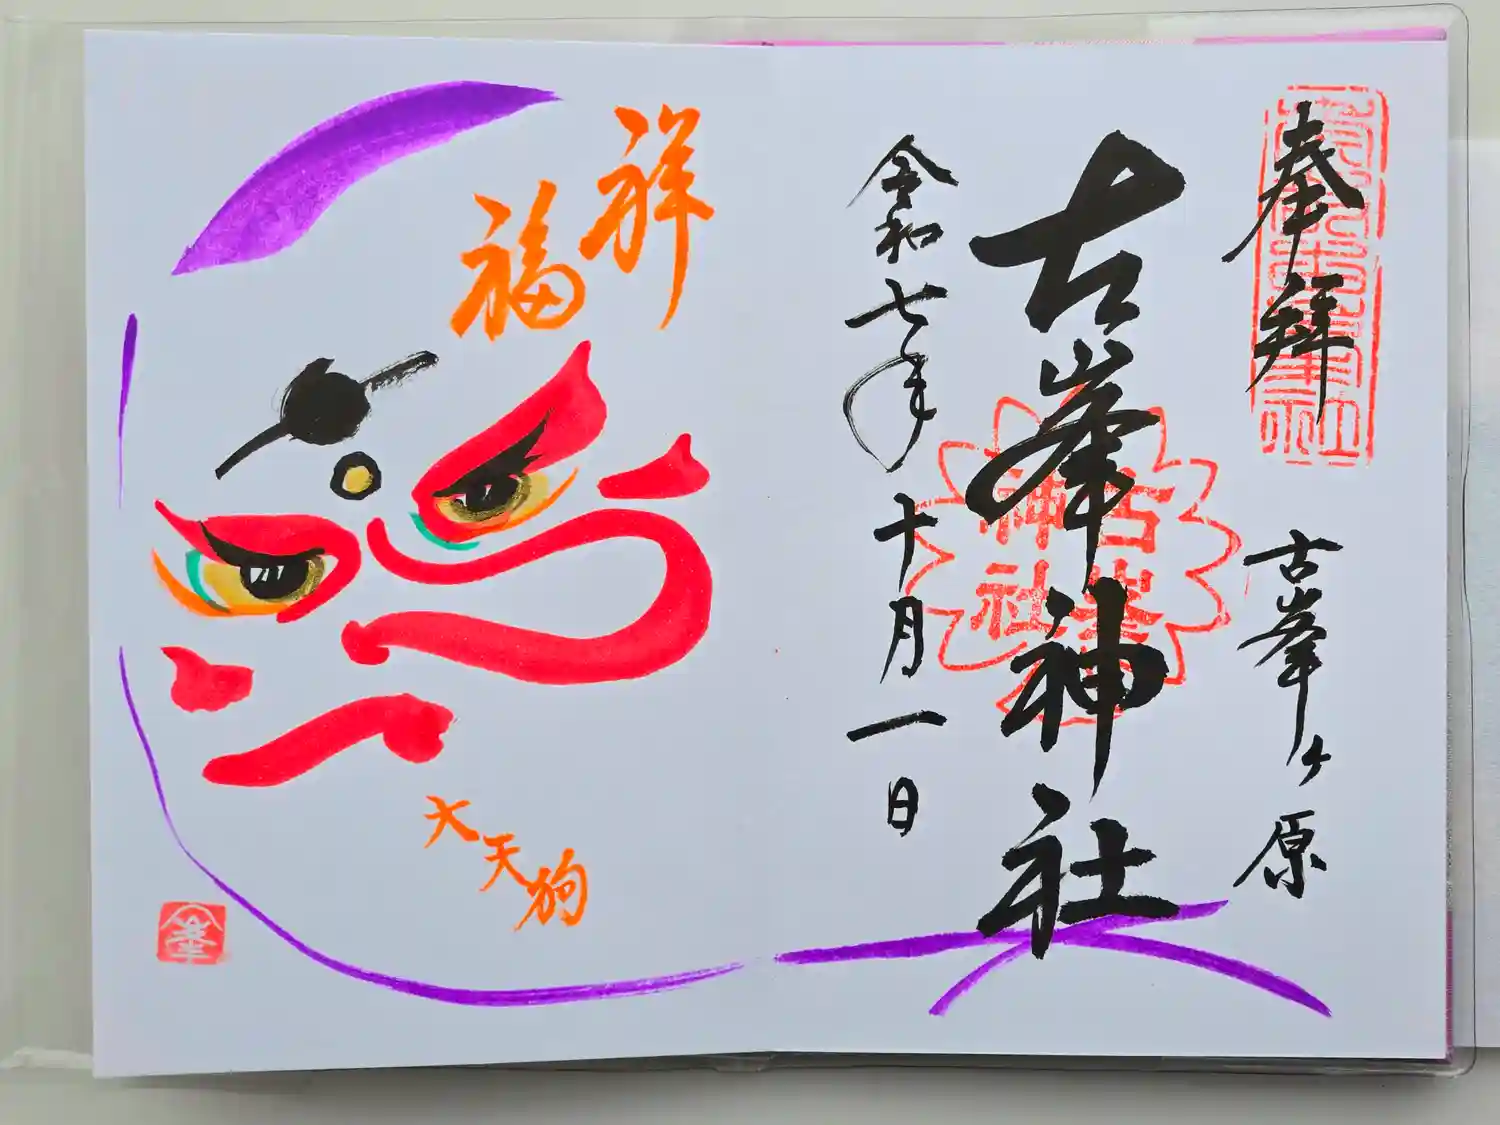 奉拝
古峯ヶ原
古峯神社
古峯神社
令和七年十月一日
祥福
大天狗
峯